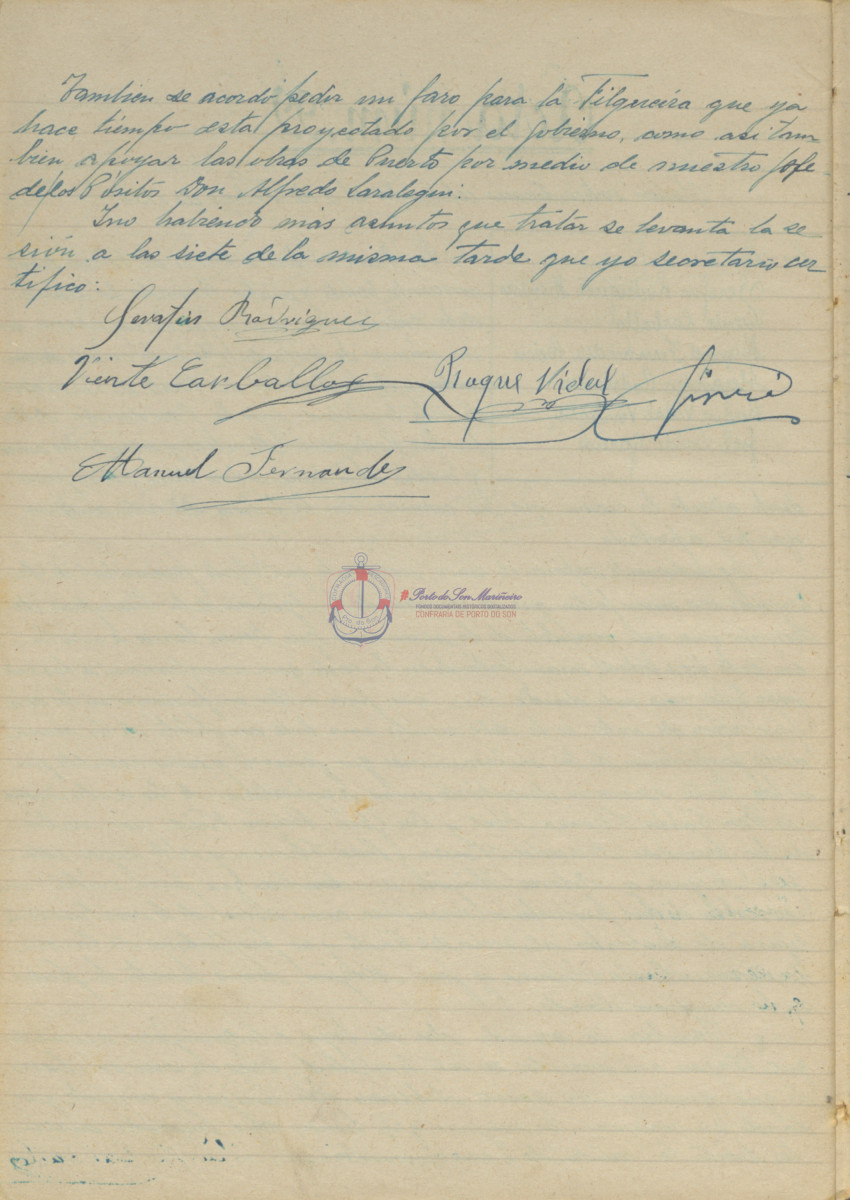 Tambien se acordó pedir un faro para la Filgueira que ya
hace tiempo esta proyectado por el Gobierno, como asi tam
bien apoyar las obras de Puerto por medio de nuestro Jefe
de los Pósitos Don Alfredo Saralegui:
Y no habiendo más asuntos que tratar se levanta la se-
sión a las siete de la misma tarde que yo secretario cer
tifico:
Serafin Rodriguez
Viente Carballo
Roque Vidal
Manuel Fernandez
Porto do Son Mariñeiro
FONDOS DOCUMENTAIS HISTÓRICOS DIXITALIZADOS
CONFRARÍA DE PORTO DO SON